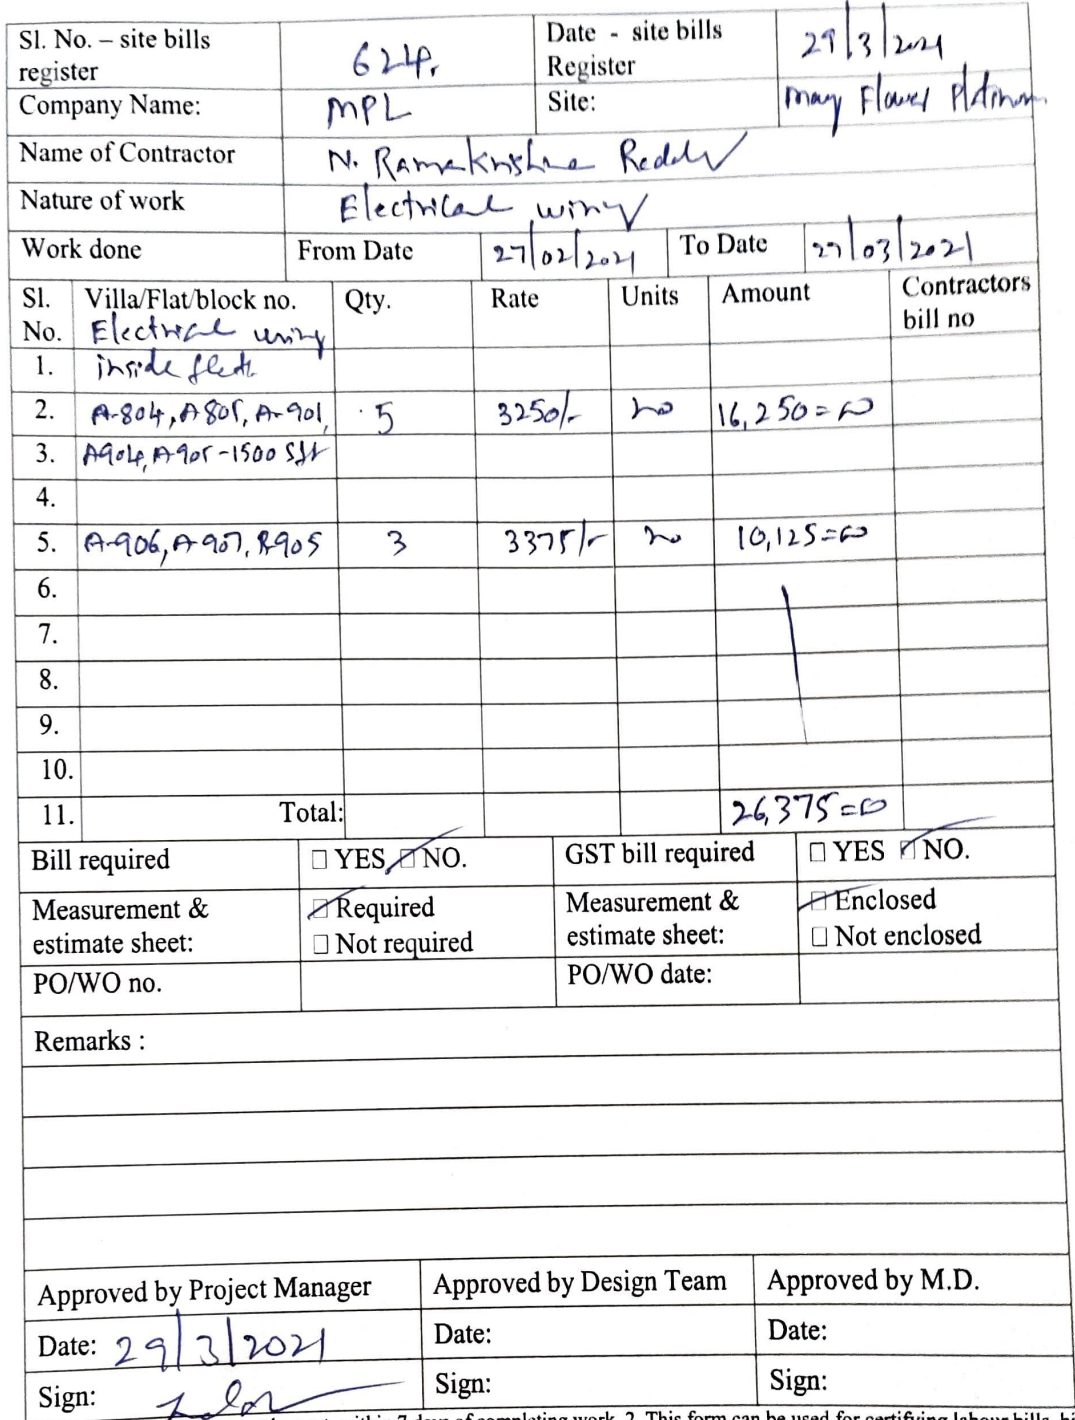 Sl. No. – site bills register 624. Date - site bills Register 29/3/2021
Company Name: MPL Site: May Flower Platinum
Name of Contractor N. Ramakrishna Reddy
Nature of work Electrical wiring
Work done From Date 27/02/2021 To Date 27/03/2021
Sl. No. Villa/Flat/block no. Qty. Rate Units Amount Contractors bill no
Electrical wiring
1. inside flats
2. A-804, A805, A-901, 5 3250/- no 16,250=00
3. A904, A905-1500 Sft
4.
5. A-906, A-907, B905 3 3375/- no 10,125=00
6.
7.
8.
9.
10.
11. Total: 26,375=00
Bill required □ YES □ NO. GST bill required □ YES □ NO.
Measurement & estimate sheet: □ Required □ Not required Measurement & estimate sheet: □ Enclosed □ Not enclosed
PO/WO no. PO/WO date:
Remarks :
Approved by Project Manager Approved by Design Team Approved by M.D.
Date: 29/3/2021 Date: Date:
Sign: Sign: Sign:
within 7 days of completing work. 2. This form can be used for certifying labour bills,